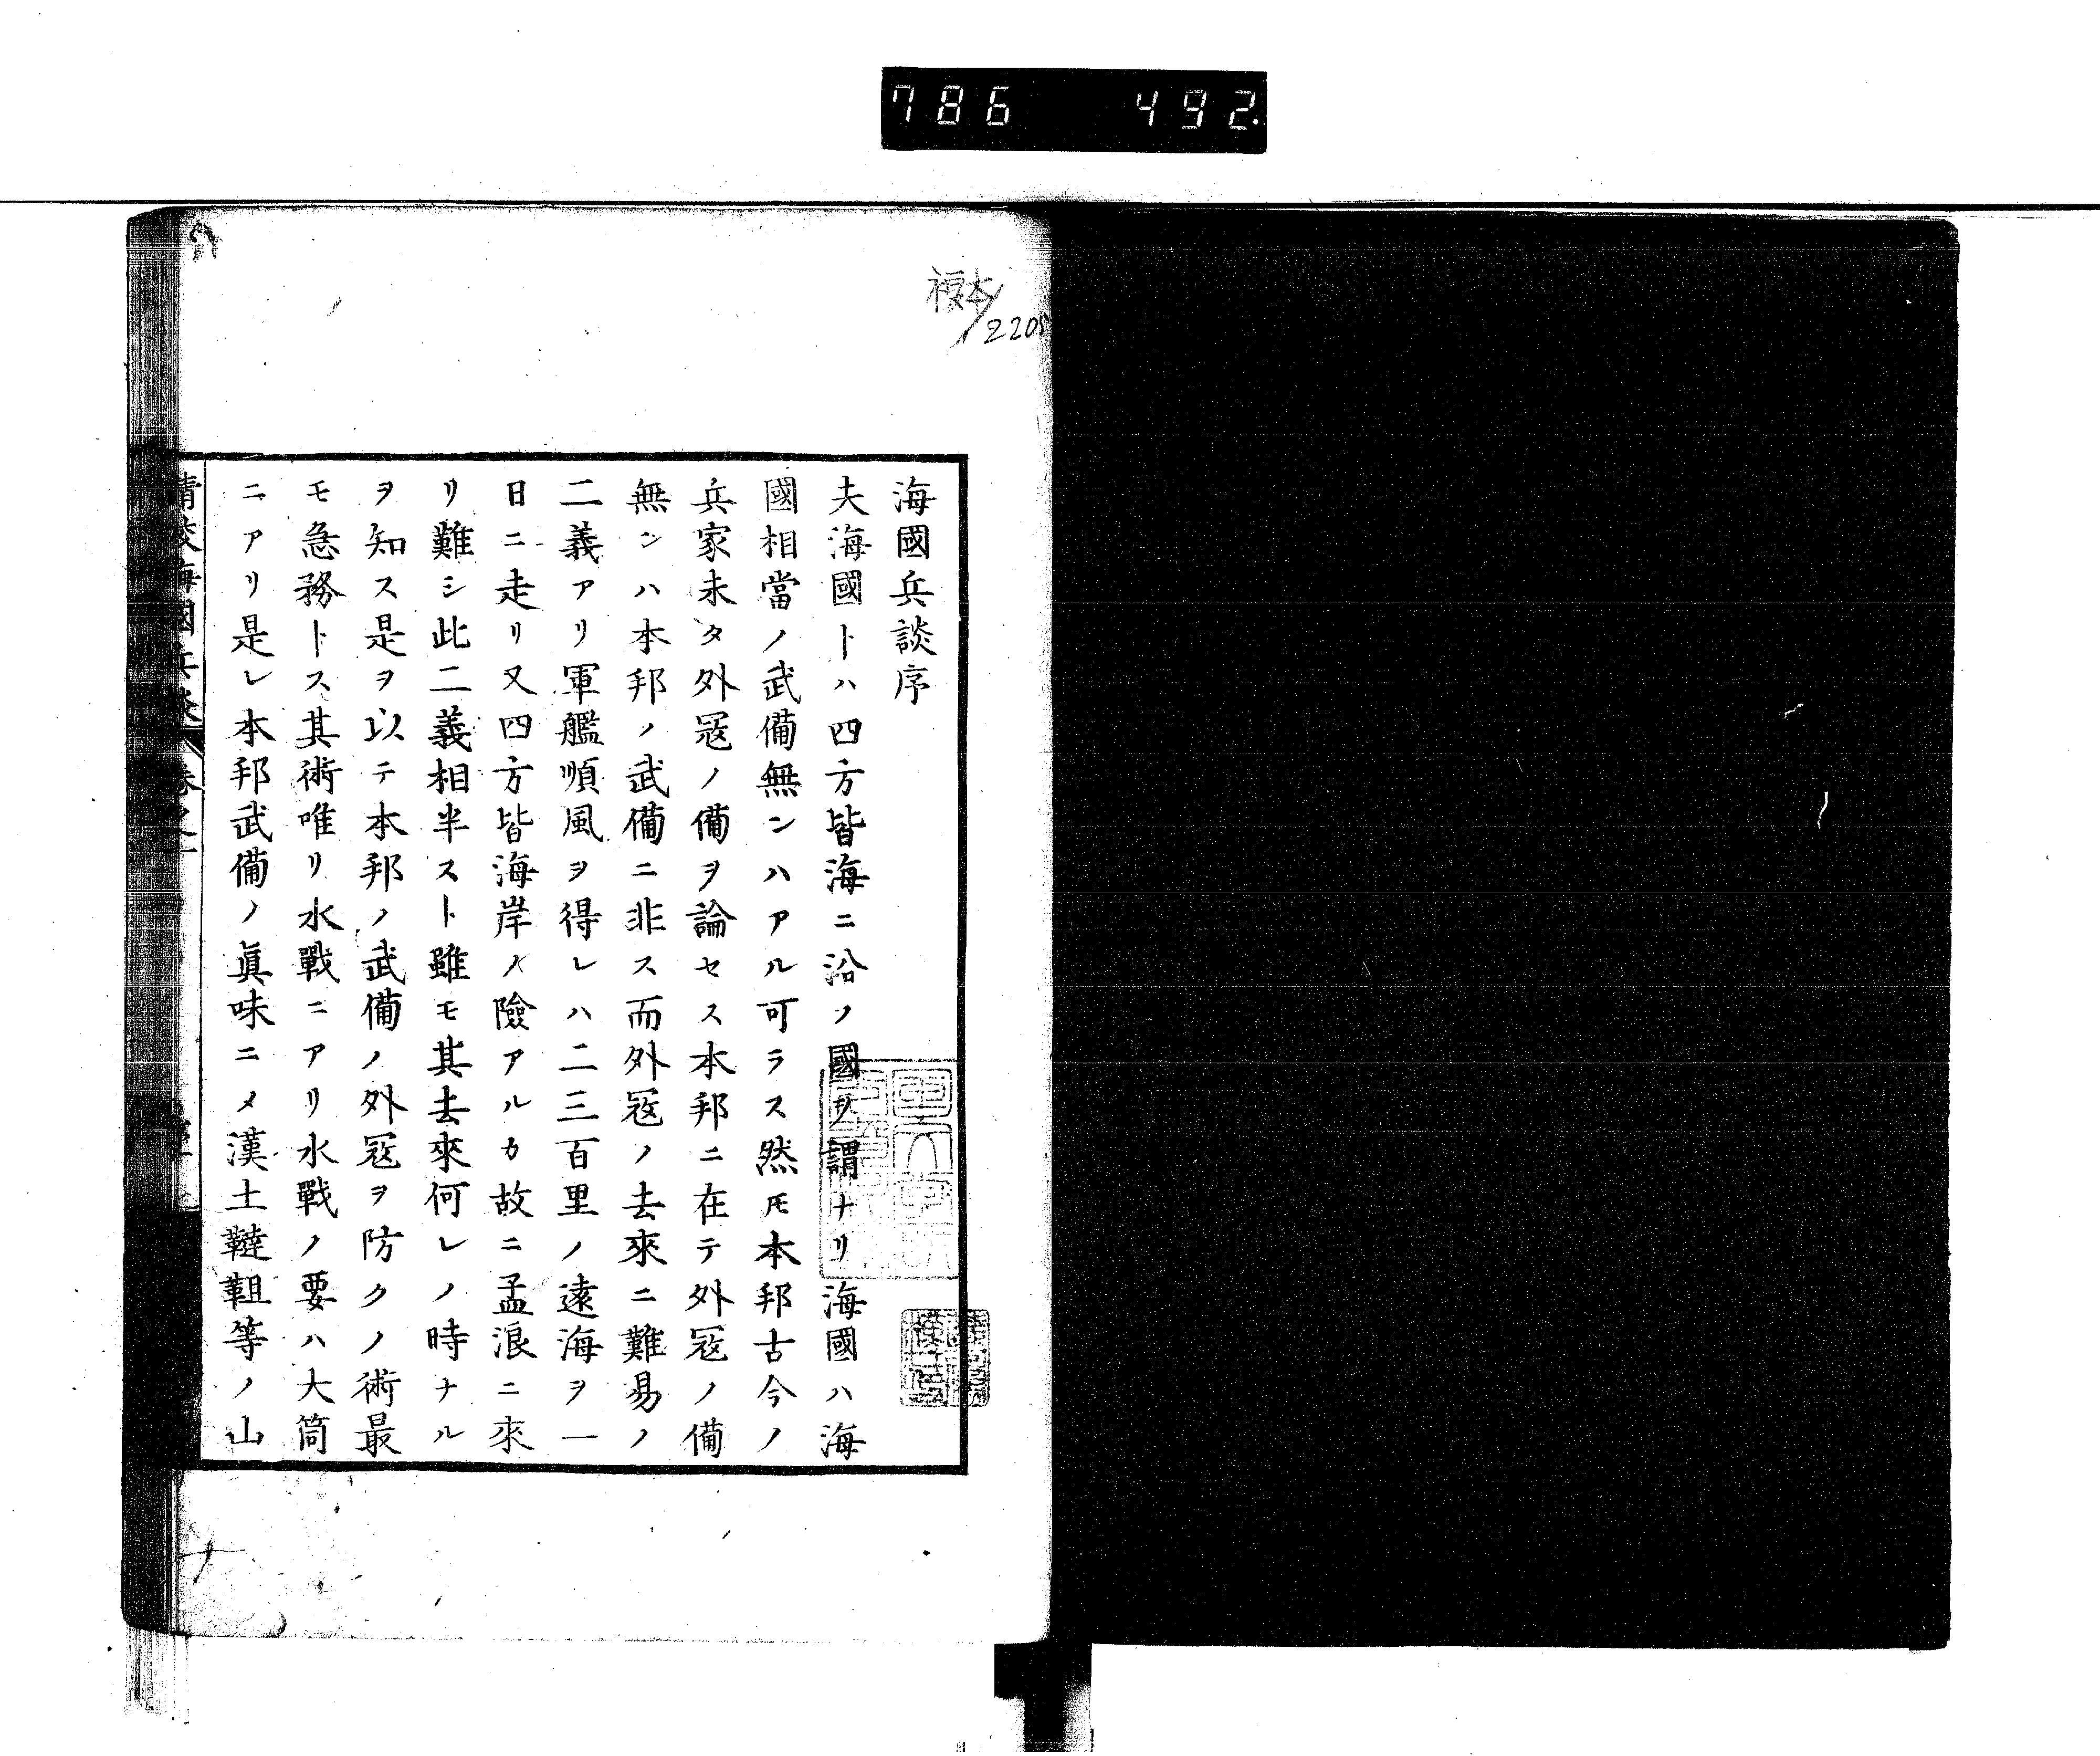 786 492
複本
2205
海國兵談序
夫海國トハ四方皆海ニ沿フ國ヲ謂ナリ海國ハ海
國相當ノ武備無ンハアル可ラス然𪜈本邦古今ノ
兵家未タ外冦ノ備ヲ論セス本邦ニ在テ外冦ノ備
無ンハ本邦ノ武備ニ非ス而外冦ノ去來ニ難易ノ
二義アリ軍艦順風ヲ得レハ二三百里ノ遠海ヲ一
日ニ走リ又四方皆海岸ノ險アルカ故ニ孟浪ニ來
リ難シ此二義相半スト雖モ其去來何レノ時ナル
ヲ知ス是ヲ以テ本邦ノ武備ノ外冦ヲ防クノ術最
モ急務トス其術唯リ水戰ニアリ水戰ノ要ハ大筒
ニアリ是レ本邦武備ノ眞味ニ〆漢土韃靼等ノ山
海國兵談 卷之一